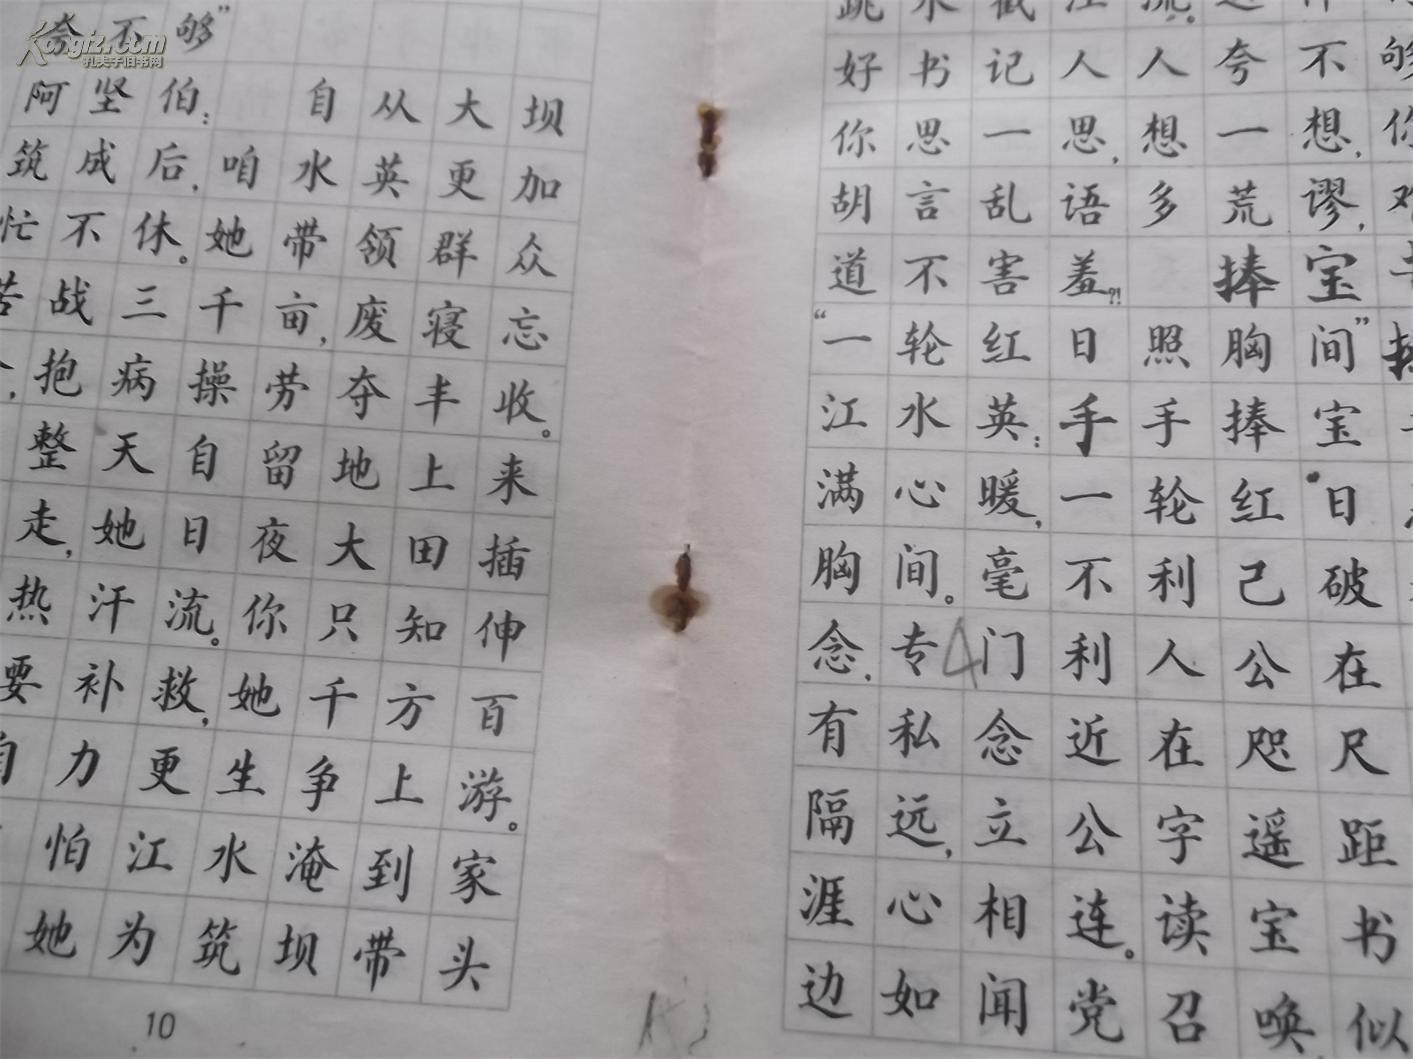 夸不够”
阿坚伯：自从大坝
筑成后，咱水英更加
忙不休。她带领群众
苦战三千亩，废寝忘
，抱病操劳夺丰收。
整天自留地上来
走，她日夜大田插
热汗流。你只知伸
要补救，她千方百
自力更生争上游。
怕江水淹到家
她为筑坝带头
10
跳水截江流。
好书记人人夸不够
你思一思，想一想，你
胡言乱语多荒谬，难
道不害羞？！ 捧宝书
“一轮红日照胸间”
江水英：手手捧宝
满心暖，一轮红日
胸间。毫不利己破
念，专门利人公在
有私念近在咫尺
隔远，立公字遥距
涯心相连。读宝书
边如闻党召唤，似
Kongfz.com
孔夫子旧书网